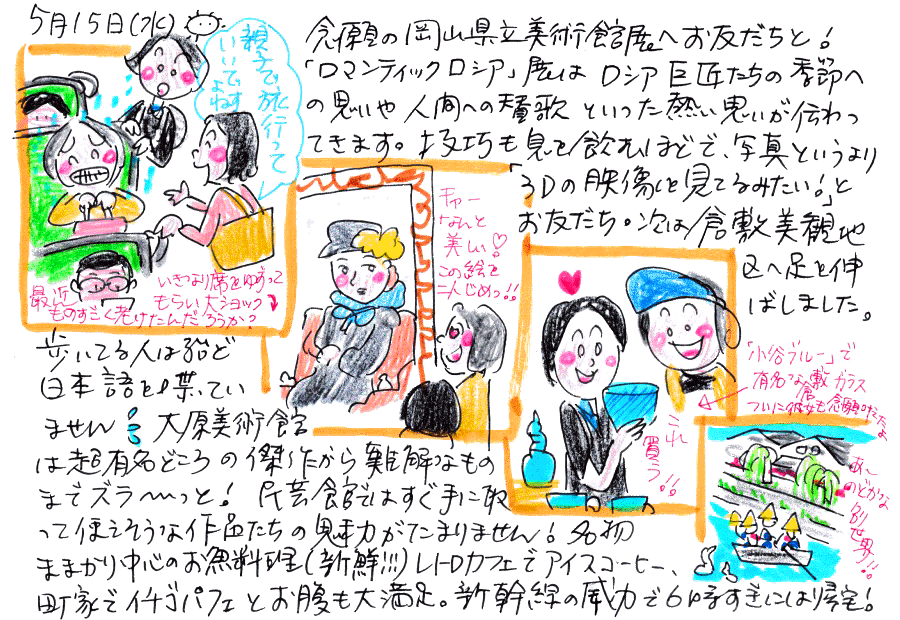 5月15日(水)
念願の岡山県立美術館展へお友だちと!
「ロマンティックロシア」展は ロシア巨匠たちの季節へ
の思いや 人間への賛歌 といった熱い思いが伝わっ
てきます。技巧も見て飲れほどで、写真というより
「3Dの映像を見てるみたい!」と
お友だち。次は倉敷美観地
区へ足を伸
ばしました。
親子で旅行って
いいですよね
いきなり席をゆずって
もらい大ショック
最近
ものすごく老けたんだろうか?
キャー
なんと
美しい♡
この絵を
二人じめっ!!
「小谷ブルー」で
有名な倉敷ガラス
ついに彼女も念願の
これ
買う!!
あ〜
のどかな
別
世界!!
歩いてる人は殆ど
日本語を喋ってい
ません!大原美術館
は超有名どころの傑作から難解なもの
までズラ〜っと!民芸館ではすぐ手に取
って使えそうな作品たちの魅力がたまりません!名物
ままかり中心のお魚料理(新鮮!!!)レトロカフェでアイスコーヒー、
町家でイチゴパフェとお腹も大満足。新幹線の威力で6時すぎには帰宅!